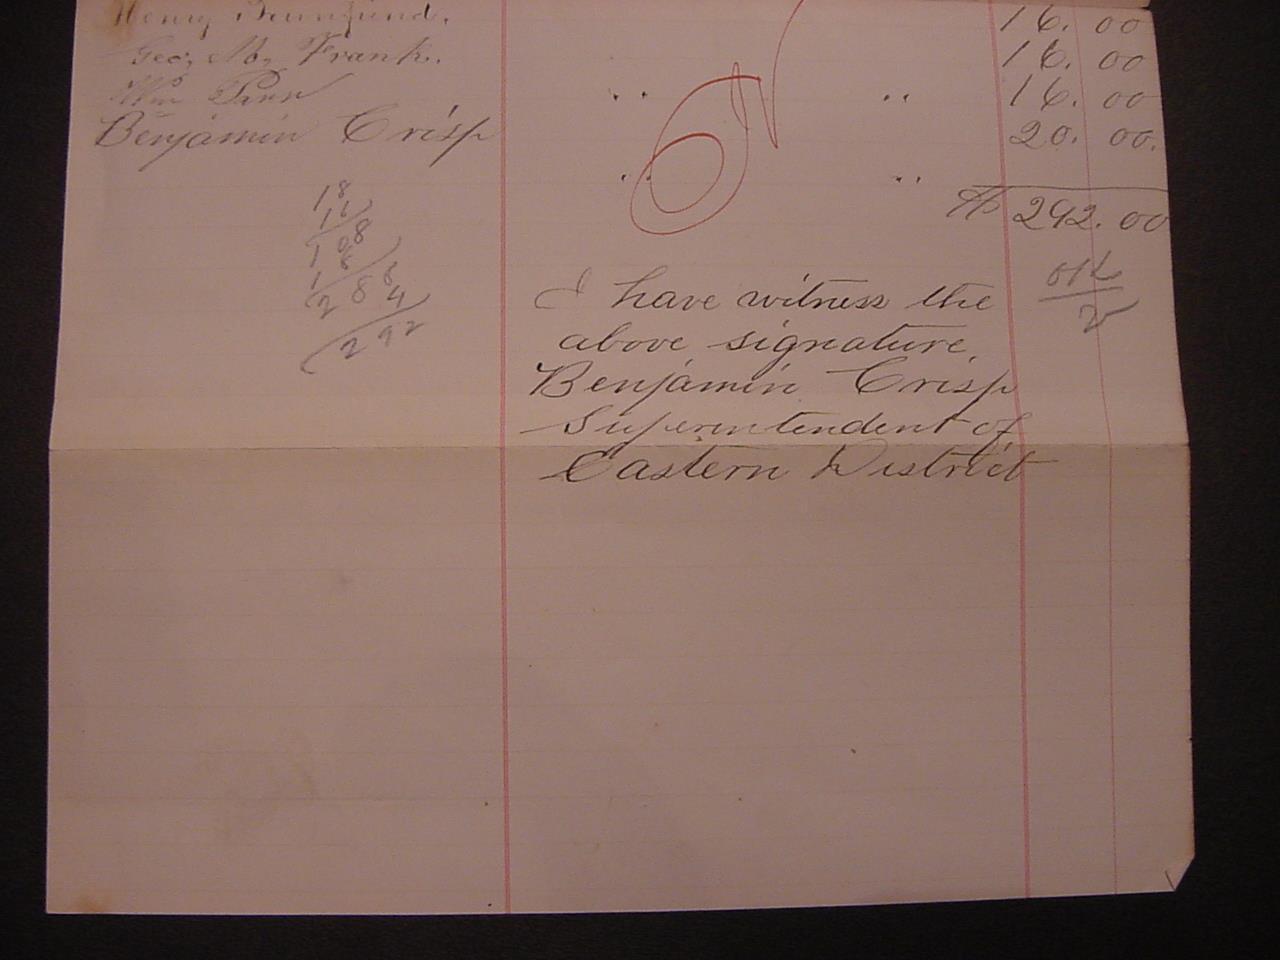 Henry 16. 00
Geo, M, Frank. 16. 00
Wm Penn " " 16. 00
Benjamin Crisp 20. 00.
" "
$ 292. 00
18
16
108
18
288
4
292
OK
I have witness the
above signature.
Benjamin Crisp
Superintendent of
Eastern District